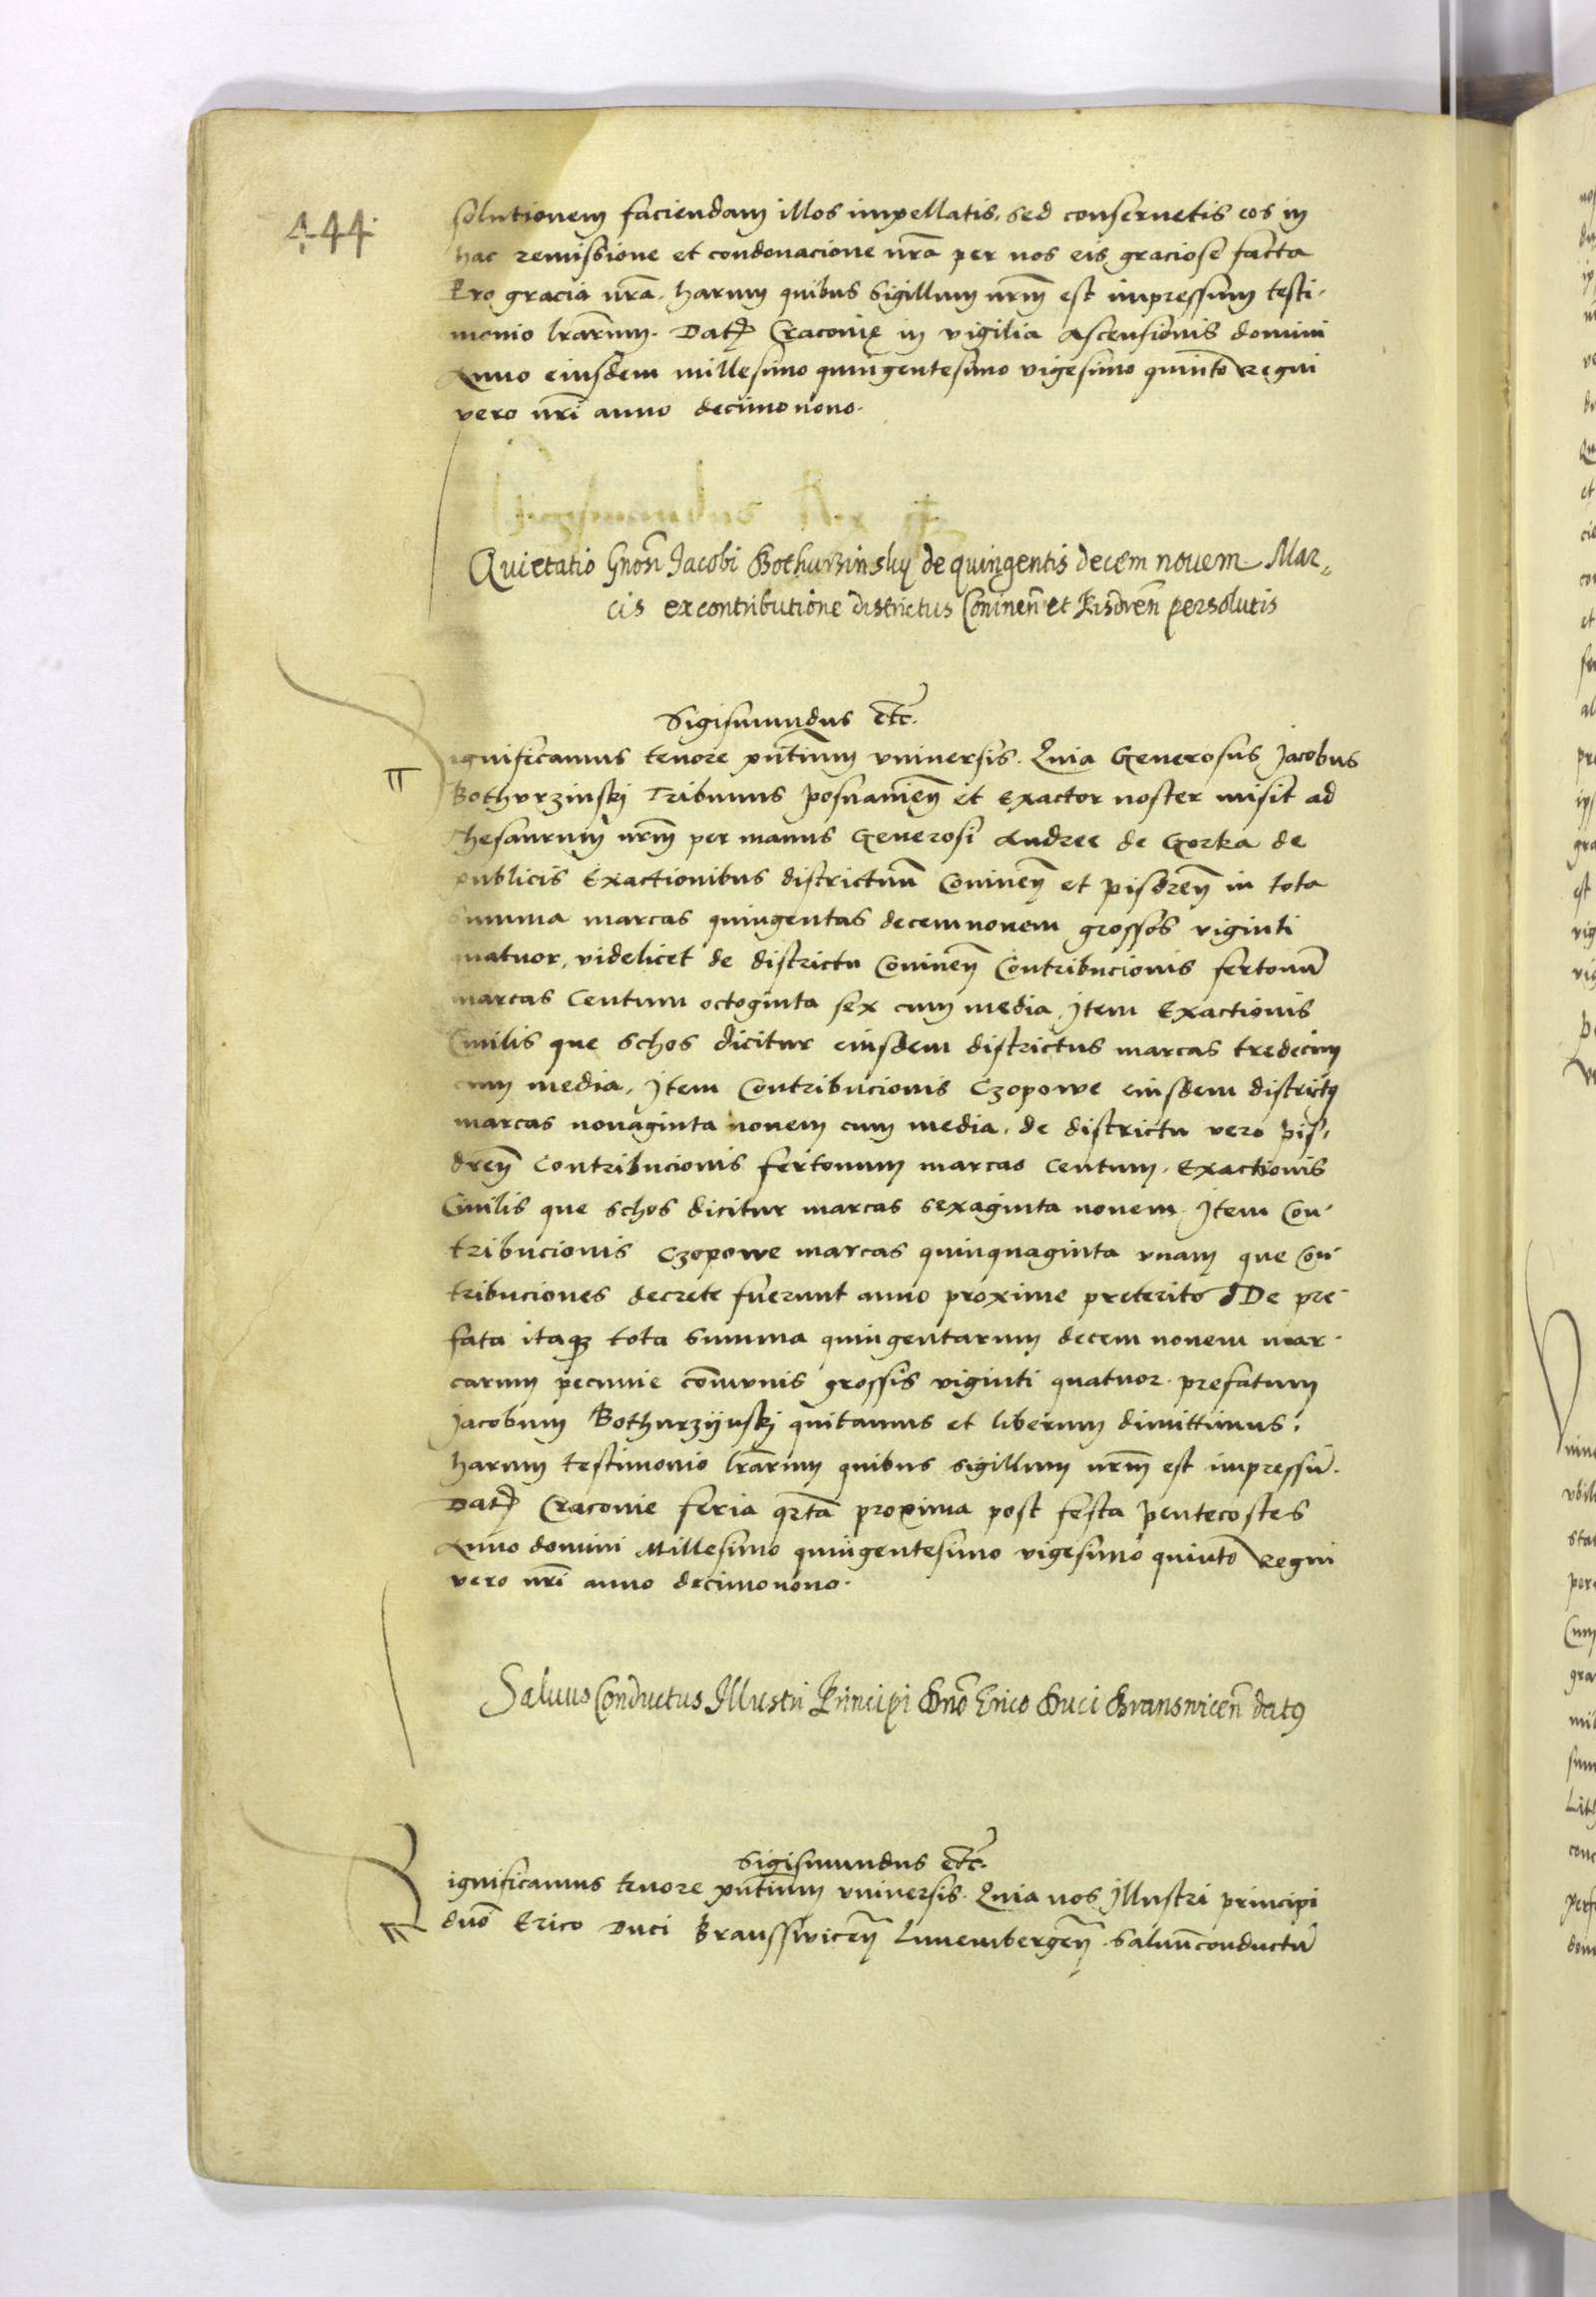 444
solutionem faciendam illos impellatis, sed conservetis eos in
hac remissione et condonacione nrã per nos eis graciose facta
Pro gracia nrã. harum quibus Sigillum nrm̃ est impressum testi-
monio lrãrum. Dat̃ Cracovię in vigilia Ascensionis domini
Anno eiusdem millesimo quingentesimo vigesimo quinto Regni
vero nrĩ anno decimonono.
Quietatio Gnosĩ Jacobi Bothurzinsky de quingentis decem novem Mar-
cis ex contributione districtus Coninen̄ et Pisdren̄ persolutis
Sigismundus etc̃.
Significamus tenore pñtium universis. Quia Generosus Jacobus
Bothvrzinskj Tribunus posnanien̄ et Exactor noster misit ad
Thesaurum nrm̃ per manus Generosi Andree de Gorka de
publicis Exactionibus districtuũ Coninen̄ et pisdren̄ in tota
Summa marcas quingentas decemnovem grossos viginti
quatuor, videlicet de districtu Coninen̄ Contribucionis fertonũ
marcas Centum octoginta sex cum media, Item Exactionis
Civilis que Schos dicitur eiusdem districtus marcas tredecim
cum media, Item Contribucionis Czopowe eiusdem districtꝰ
marcas nonaginta novem cum media, de districtu vero pis-
dren̄ Contribucionis fertonum marcas Centum. Exactionis
Civilis que Schos dicitur marcas Sexaginta novem. Item Con-
tribucionis Czopowe marcas quinquaginta unam que Con-
tribuciones decrete fuerunt anno proxime preterito De pre-
fata itaqȝ tota Summa quingentarum decem novem mar-
carum pecunie cõmunis grossis viginti quatuor. prefatum
Jacobum Bothurzijnskj quitamus et liberum dimittimus.
harum testimonio lrãrum quibus Sigillum nrm̃ est impressũ.
Dat̃ Cracovie feria qrtã proxima post festa pentecostes
Anno domini Millesimo quingentesimo vigesimo quinto Regni
vero nrĩ anno decimonono.
Salvus Conductus Illustri Principi Dnõ Erico Duci Bransvicen̄ datꝰ
Sigismundus etc̃.
Significamus tenore pñtium universis. Quia nos Illustri principi
dnõ Erico Duci Branssvicen̄ Lunembergen̄ Salvũconductũ